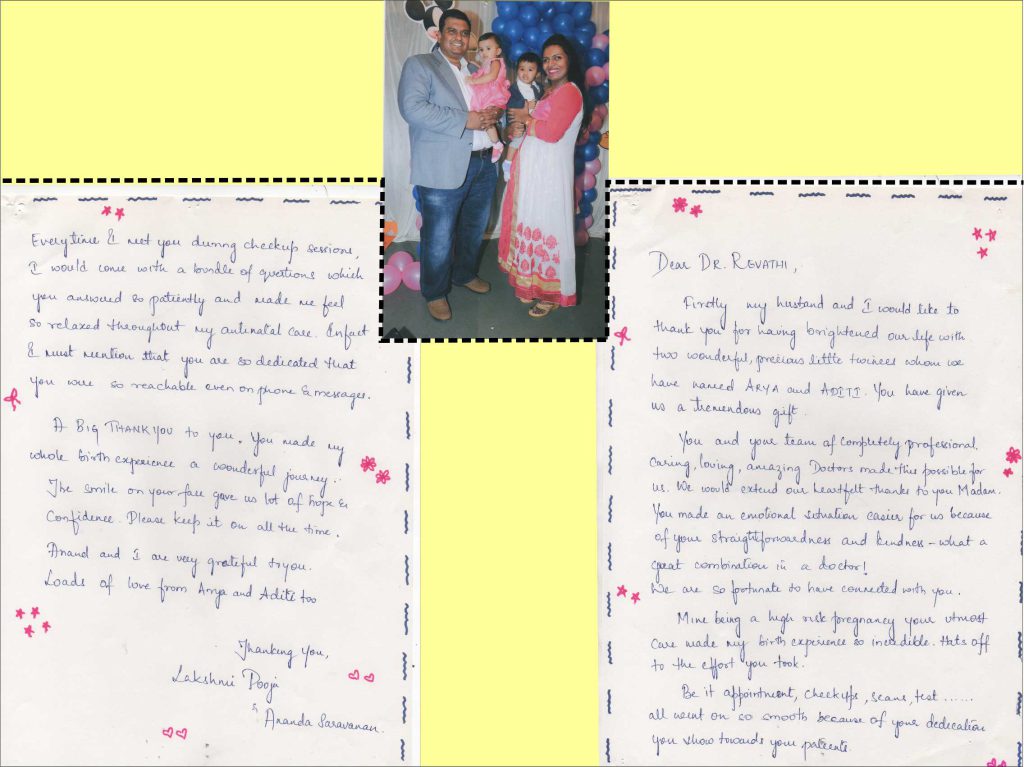 Dear DR. REVATHI,
Firstly my husband and I would like to
thank you for having brightened our life with
two wonderful, precious little twinees whom we
have named ARYA and ADITI. You have given
us a tremendous gift.
You and your team of completely professional
caring, loving, amazing Doctors made this possible for
us. We would extend our heartfelt thanks to you Madam.
You made an emotional situation easier for us because
of your straightforwardness and kindness - what a
great combination in a doctor!
We are so fortunate to have connected with you.
Mine being a high risk pregnancy your utmost
care made my birth experience so incredible. Hats off
to the effort you took.
Be it appointment, checkups, scans, test ......
all went on so smooth because of your dedication
you show towards your patients.
Everytime I meet you during checkup sessions,
I would come with a bundle of questions which
you answered so patiently and made me feel
so relaxed throughout my antinatal care. Infact
I must mention that you are so dedicated that
you were so reachable even on phone & messages.
A BIG THANKYOU to you. You made my
whole birth experience a wonderful journey..
The smile on your face gave us lot of hope &
Confidence. Please keep it on all the time.
Anand and I are very grateful to you.
Loads of love from Arya and Aditi too
Thanking You,
Lakshmi Pooja
& Ananda Saravanan.